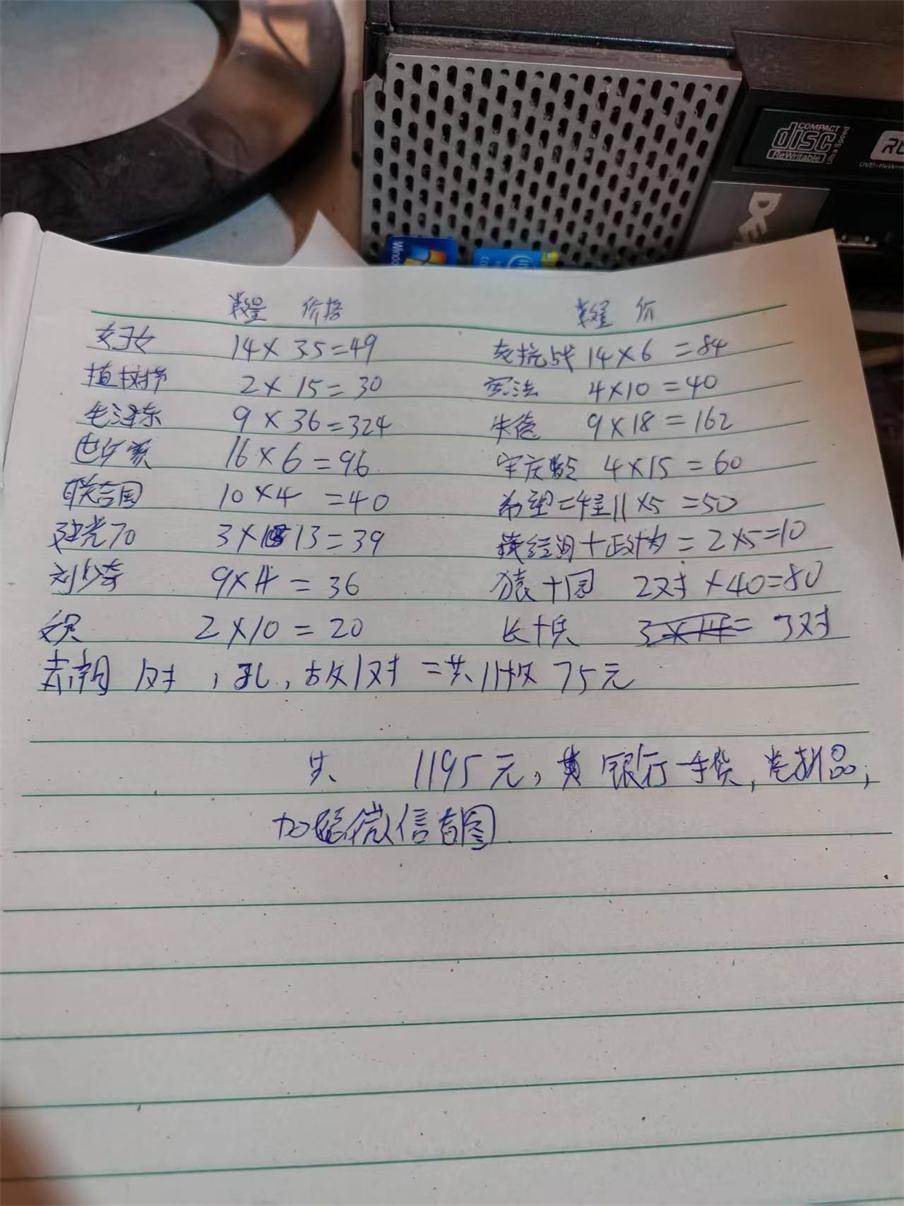 COMPACT
disc
ReWritable
Ultra Speed
DE
Windows
数量 价格
数量 价
妇女 14×35=49
友抗战 14×6=84
植树节 2×15=30
宪法 4×10=40
毛泽东 9×36=324
朱德 9×18=162
16×6=96
4×15=60
联合国 10×4=40
希望 11×5=50
建党70 3×13=39
=2×5=10
刘少奇 9×4=36
猿十园 2对×40=80
2×10=20
长十兵 3对
1对,孔,故1对=共11枚 75元
共 1195元,黄 银行一手货,党新品,
微信看图